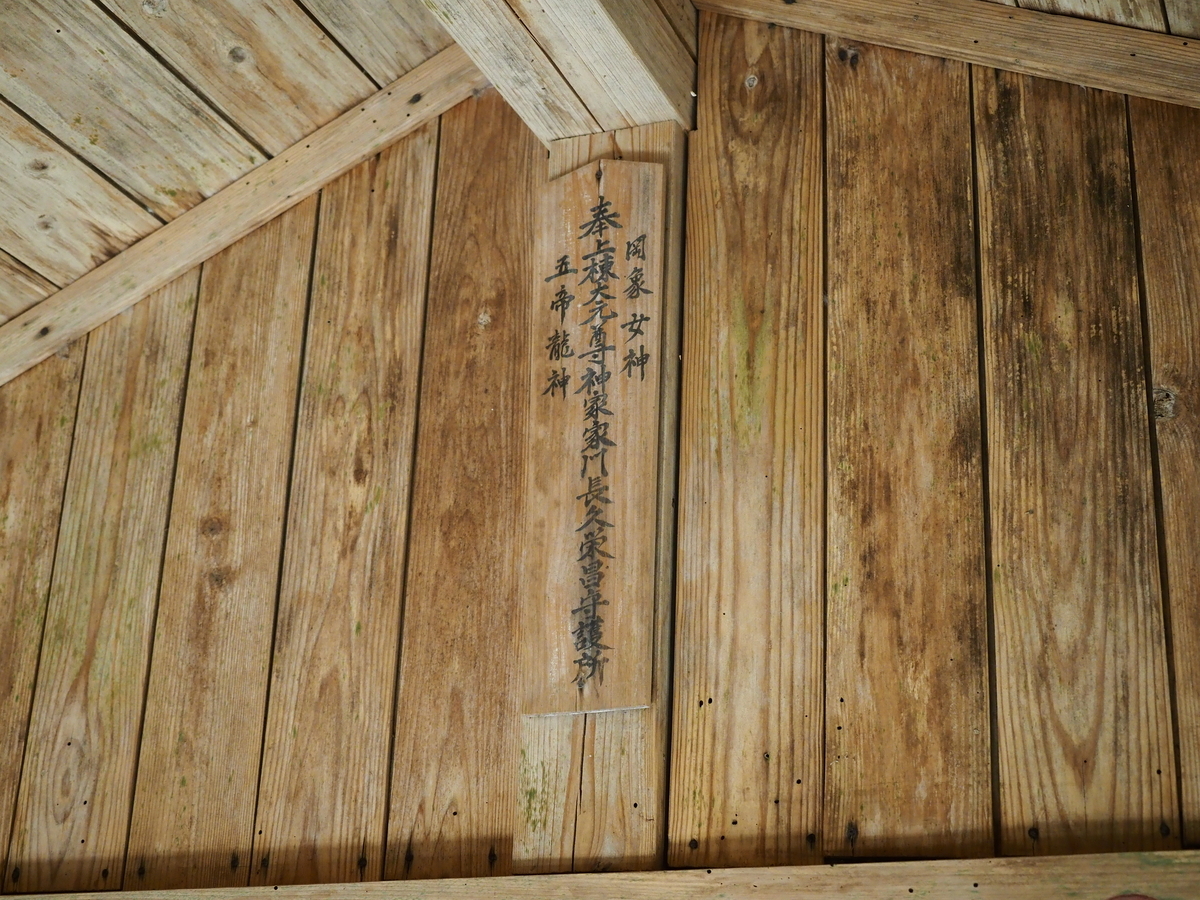 罔象女神
奉上棟大元尊神家家門長久栄昌守護所
五帝龍神